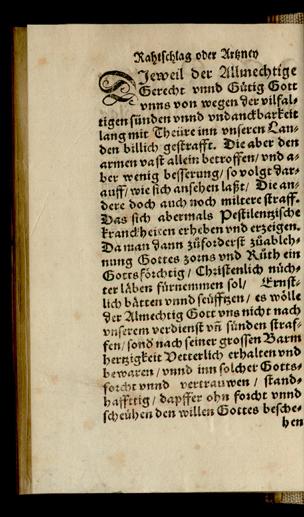 Rahtschlag oder Artzney
DJeweil der Allmechtige
Gerecht vnnd Gütig Gott
vnns von wegen der vilfal-
tigen sünden vnnd vndanckbarkeit
lang mit Theüre inn vnseren Lan-
den billich gestrafft. Die aber den
armen vast allein betroffen/ vnd a-
ber wenig besserung/ so volgt dar-
auff/ wie sich ansehen laßt/ Die an-
dere doch auch noch miltere straff.
Das sich abermals Pestilentzische
kranckheiten erheben vnd erzeigen.
Da man dann zůforderst zůableh-
nung Gottes zorns vnd Růth ein
Gottsförchtig/ Christenlich nüch-
ter läben fürnemmen sol/ Ernst-
lich bätten vnnd seüfftzen/ es wölle
der Almechtig Gott vns nicht nach
vnserem verdienst vñ sünden straf-
fen/ sond nach seiner grossen Barm
hertzigkeit Vetterlich erhalten vnd
bewaren/ vnnd inn solcher Gotts-
forcht vnnd vertrauwen/ stand-
hafftig/ dapffer ohn forcht vnnd
scheühen den willen Gottes besche-
hen